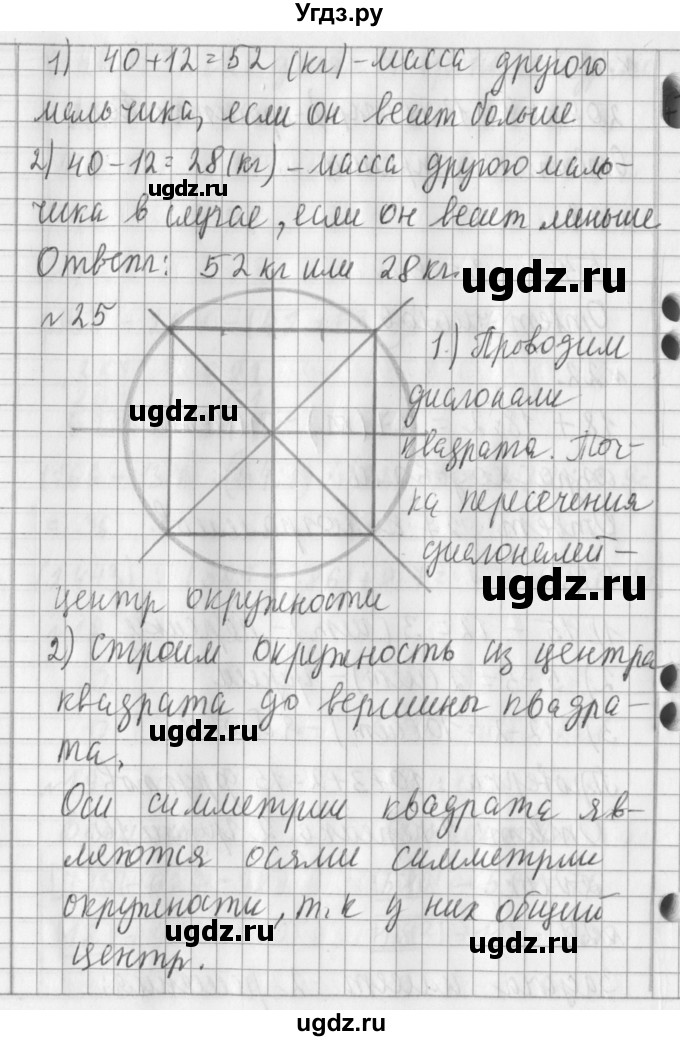 Угдз.ру
1) 40+12=52 (кг) – масса другого
мальчика, если он весит больше
2) 40-12=28(кг) – масса другого маль-
ugdz.ru
чика в случае, если он весит меньше
Ответ: 52 кг или 28 кг.
ugdz.ru
№25
1.) Проводим
диагонали
ugdz.ru
квадрата. Точ-
ка пересечения
диагоналей –
ugdz.ru
центр окружности
2) Строим окружность из центра
квадрата до вершины квадра-
ugdz.ru
та.
Оси симметрии квадрата яв-
ляются осями симметрии
окружности, т.к у них общий
ugdz.ru
ugdz.ru
центр.
ugdz.ru